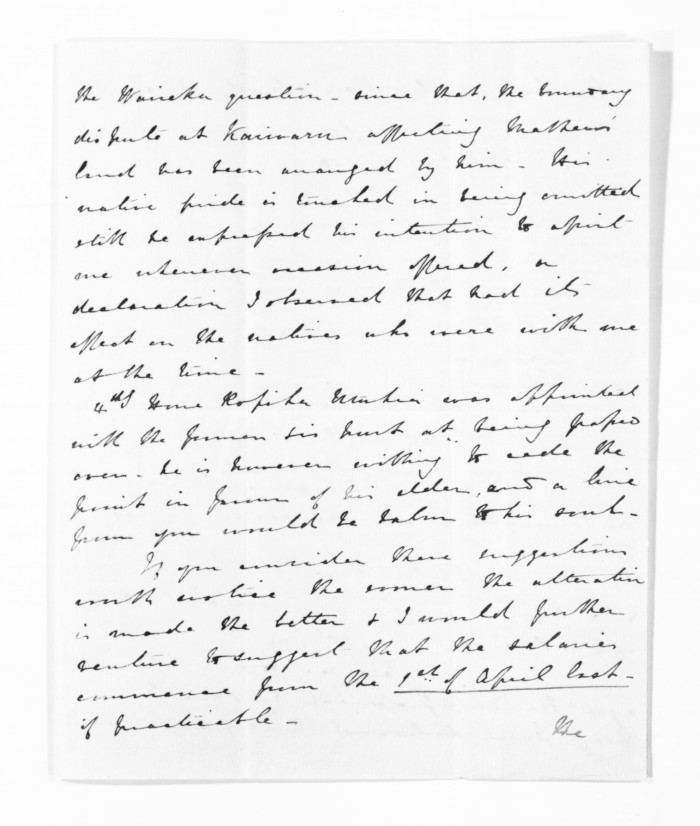 the Waireka question - since that, the boundary
dispute at Kaiwarra affecting Mathews'
land has been arranged by him - His
native pride is touched in being omitted
still he expressed his intention to assist
me whenever occasion offered, a
declaration I observed that had its
effect on the natives who were with me
at the time -
4th Hone was appointed
with the former is hurt at being passed
over - he is however willing to cede the
point in favour of his elder, and a line
from you would be balm to his soul -
If you consider these suggestions
worth notice the sooner the alteration
is made the better & I would further
venture to suggest that the salaries
commence from the 1st of April last -
if practicable -
the